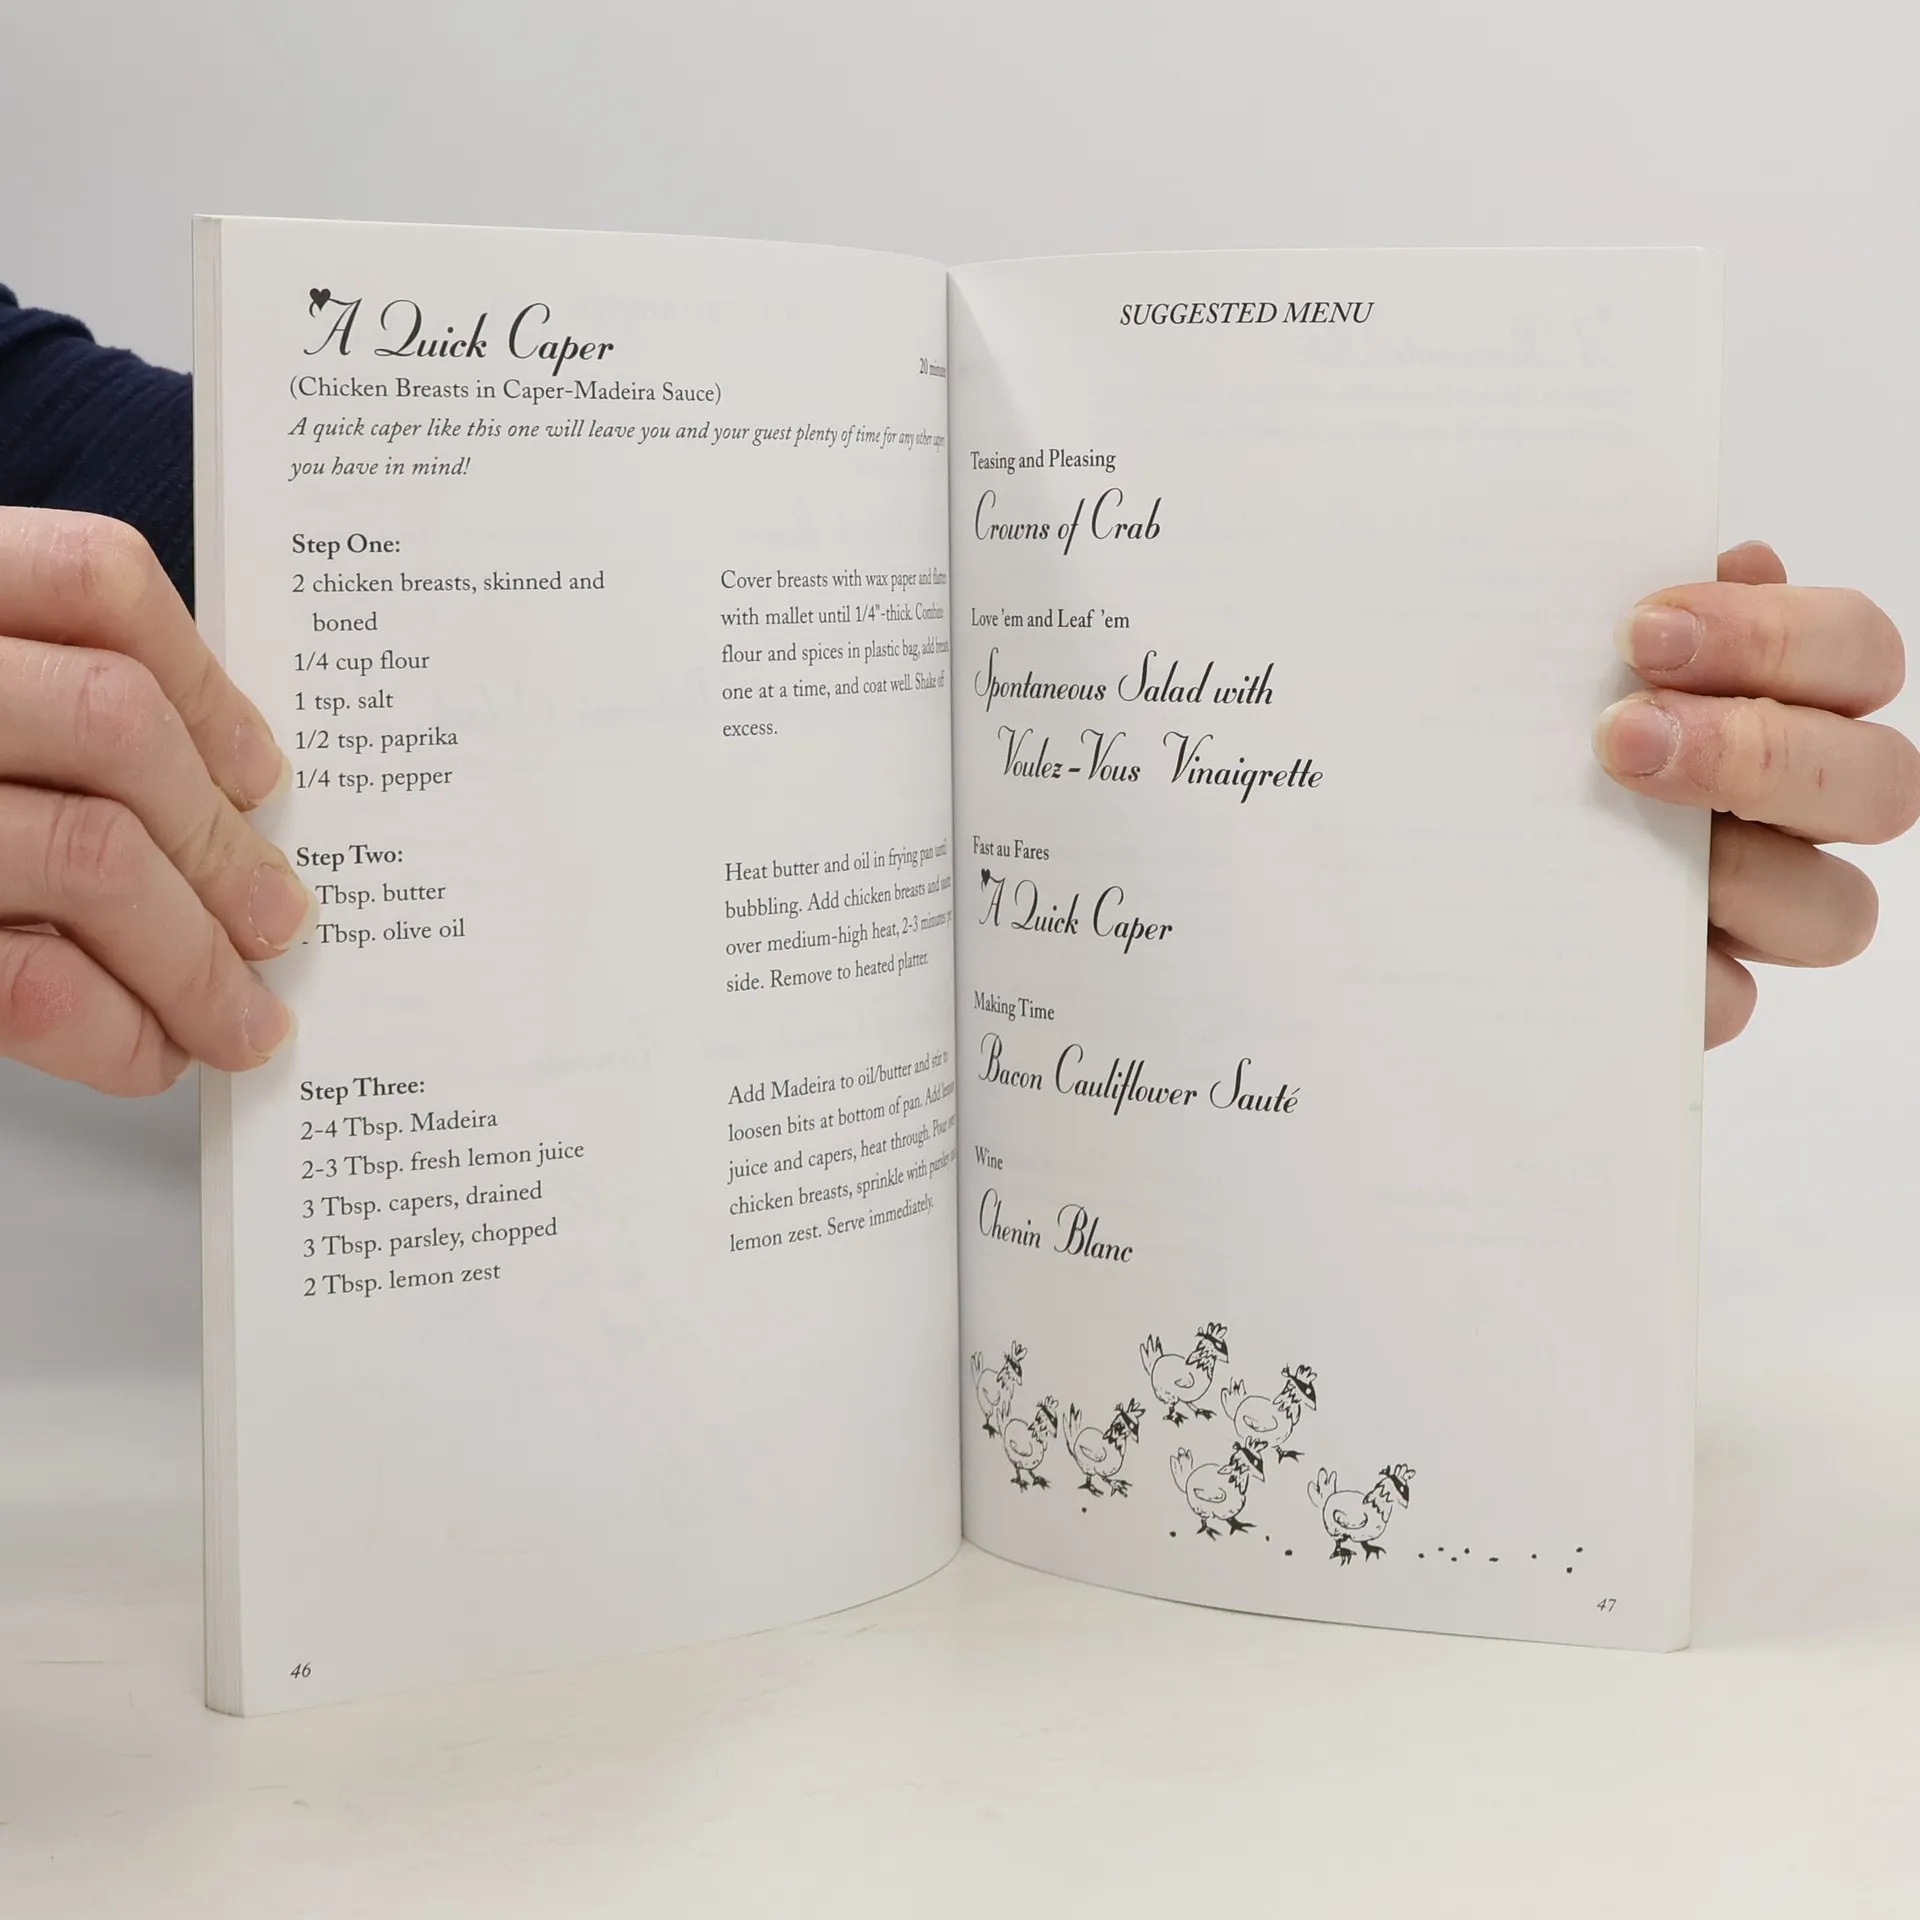 A Quick Caper
20 minutes
(Chicken Breasts in Caper-Madeira Sauce)
A quick caper like this one will leave you and your guest plenty of time for any other caper
you have in mind!
Step One:
2 chicken breasts, skinned and
boned
1/4 cup flour
1 tsp. salt
1/2 tsp. paprika
1/4 tsp. pepper
Cover breasts with wax paper and flatten
with mallet until 1/4"-thick. Combine
flour and spices in plastic bag, add breasts
one at a time, and coat well. Shake off
excess.
Step Two:
Tbsp. butter
Tbsp. olive oil
Heat butter and oil in frying pan until
bubbling. Add chicken breasts and
over medium-high heat, 2-3 minutes per
side. Remove to heated platter.
Step Three:
2-4 Tbsp. Madeira
2-3 Tbsp. fresh lemon juice
3 Tbsp. capers, drained
3 Tbsp. parsley, chopped
2 Tbsp. lemon zest
Add Madeira to oil/butter and stir to
loosen bits at bottom of pan. Add lemon
juice and capers, heat through. Pour over
chicken breasts, sprinkle with parsley and
lemon zest. Serve immediately.
46
SUGGESTED MENU
Teasing and Pleasing
Crowns of Crab
Love 'em and Leaf 'em
Spontaneous Salad with
Voulez-Vous Vinaigrette
Fast au Fares
A Quick Caper
Making Time
Bacon Cauliflower Sauté
Wine
Chenin Blanc
47